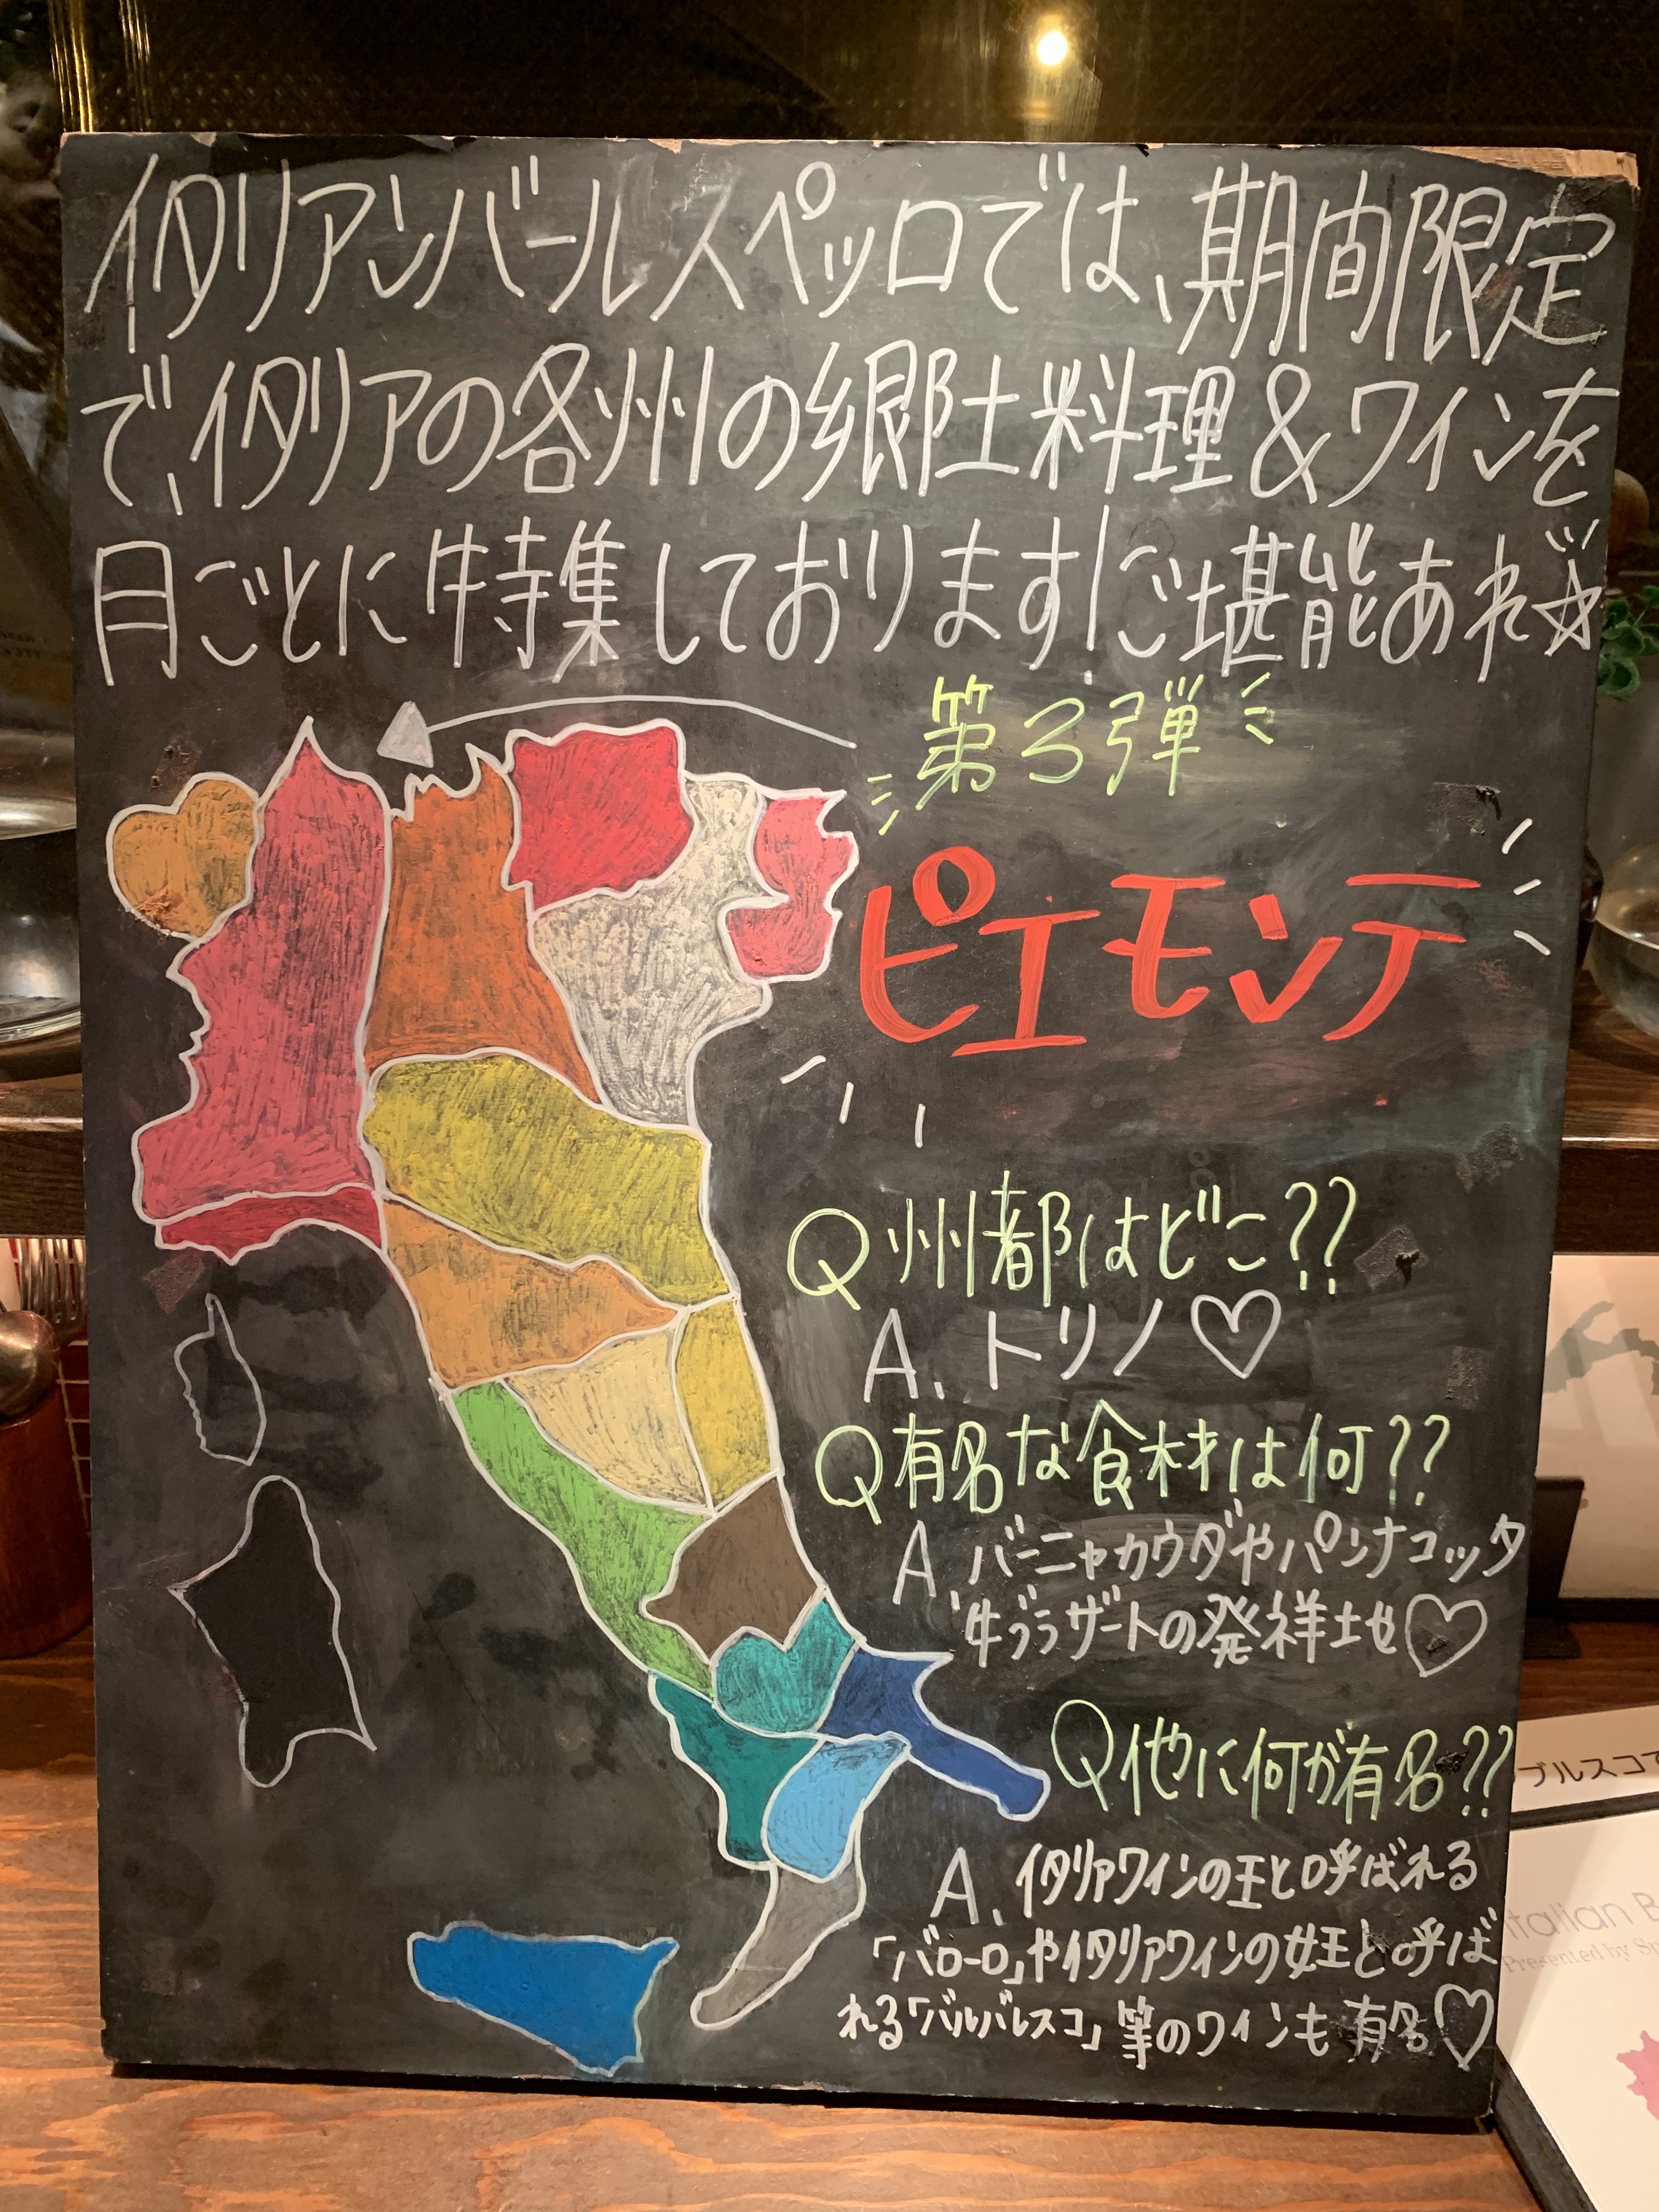 イタリアンバールスペッロでは、期間限定
で、イタリアの各州の郷土料理&ワインを
月ごとに特集しております!ご堪能あれ☆
第3弾
ピエモンテ
Q 州都はどこ??
A. トリノ♡
Q 有名な食材は何??
A. バーニャカウダやパンナコッタ
牛ブラザートの発祥地♡
Q 他に何が有名??
A. イタリアワインの王と呼ばれる
「バローロ」やイタリアワインの女王と呼ば
れる「バルバレスコ」等のワインも有名♡
ブルスコ
Italian B
Presented by Sp